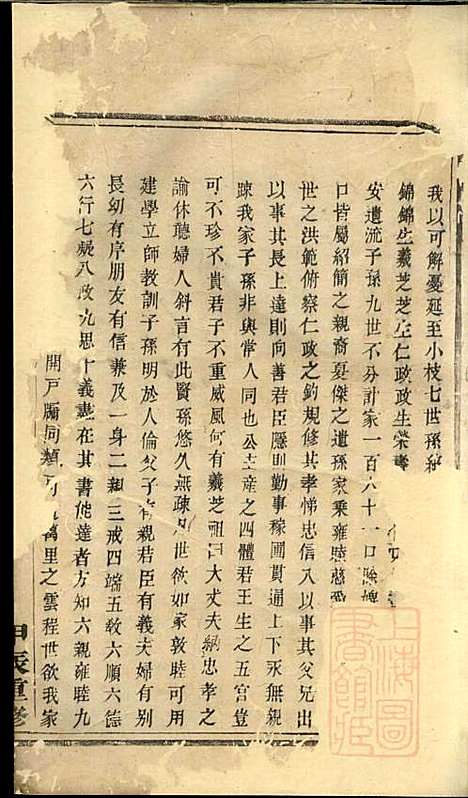 我以可解憂延至小枝七世孫
錦錦生羲芝芝生仁政政生榮
安遺流子孫九世不分計家一百六十一口除婢
口皆屬紹簡之親裔夏傑之遺孫家乘雍睦慈愛
世之洪範俯察仁政之鈞規修其孝悌忠信入以事其父兄出
以事其長上達則向善君臣隱則勤事稼圃貫通上下永無親
踈我家子孫非與常人同也公主産之四體君王生之五宫豈
可不珍不貴君子不重威風何有羲芝祖曰大丈夫納忠孝之
諭休聽婦人斜言有此賢孫悠久無疎世欲如家敦睦可用
建學立師教訓子孫明於人倫父子有親君臣有義夫婦有别
長幼有序朋友有信兼及一身二親三戒四端五敎六順六德
六行七凝八政九思十義盡在其書能達者方知六親雍睦九
開戸矚同類可萬里之雲程世欲我家
甲辰重修
上海圖書館藏